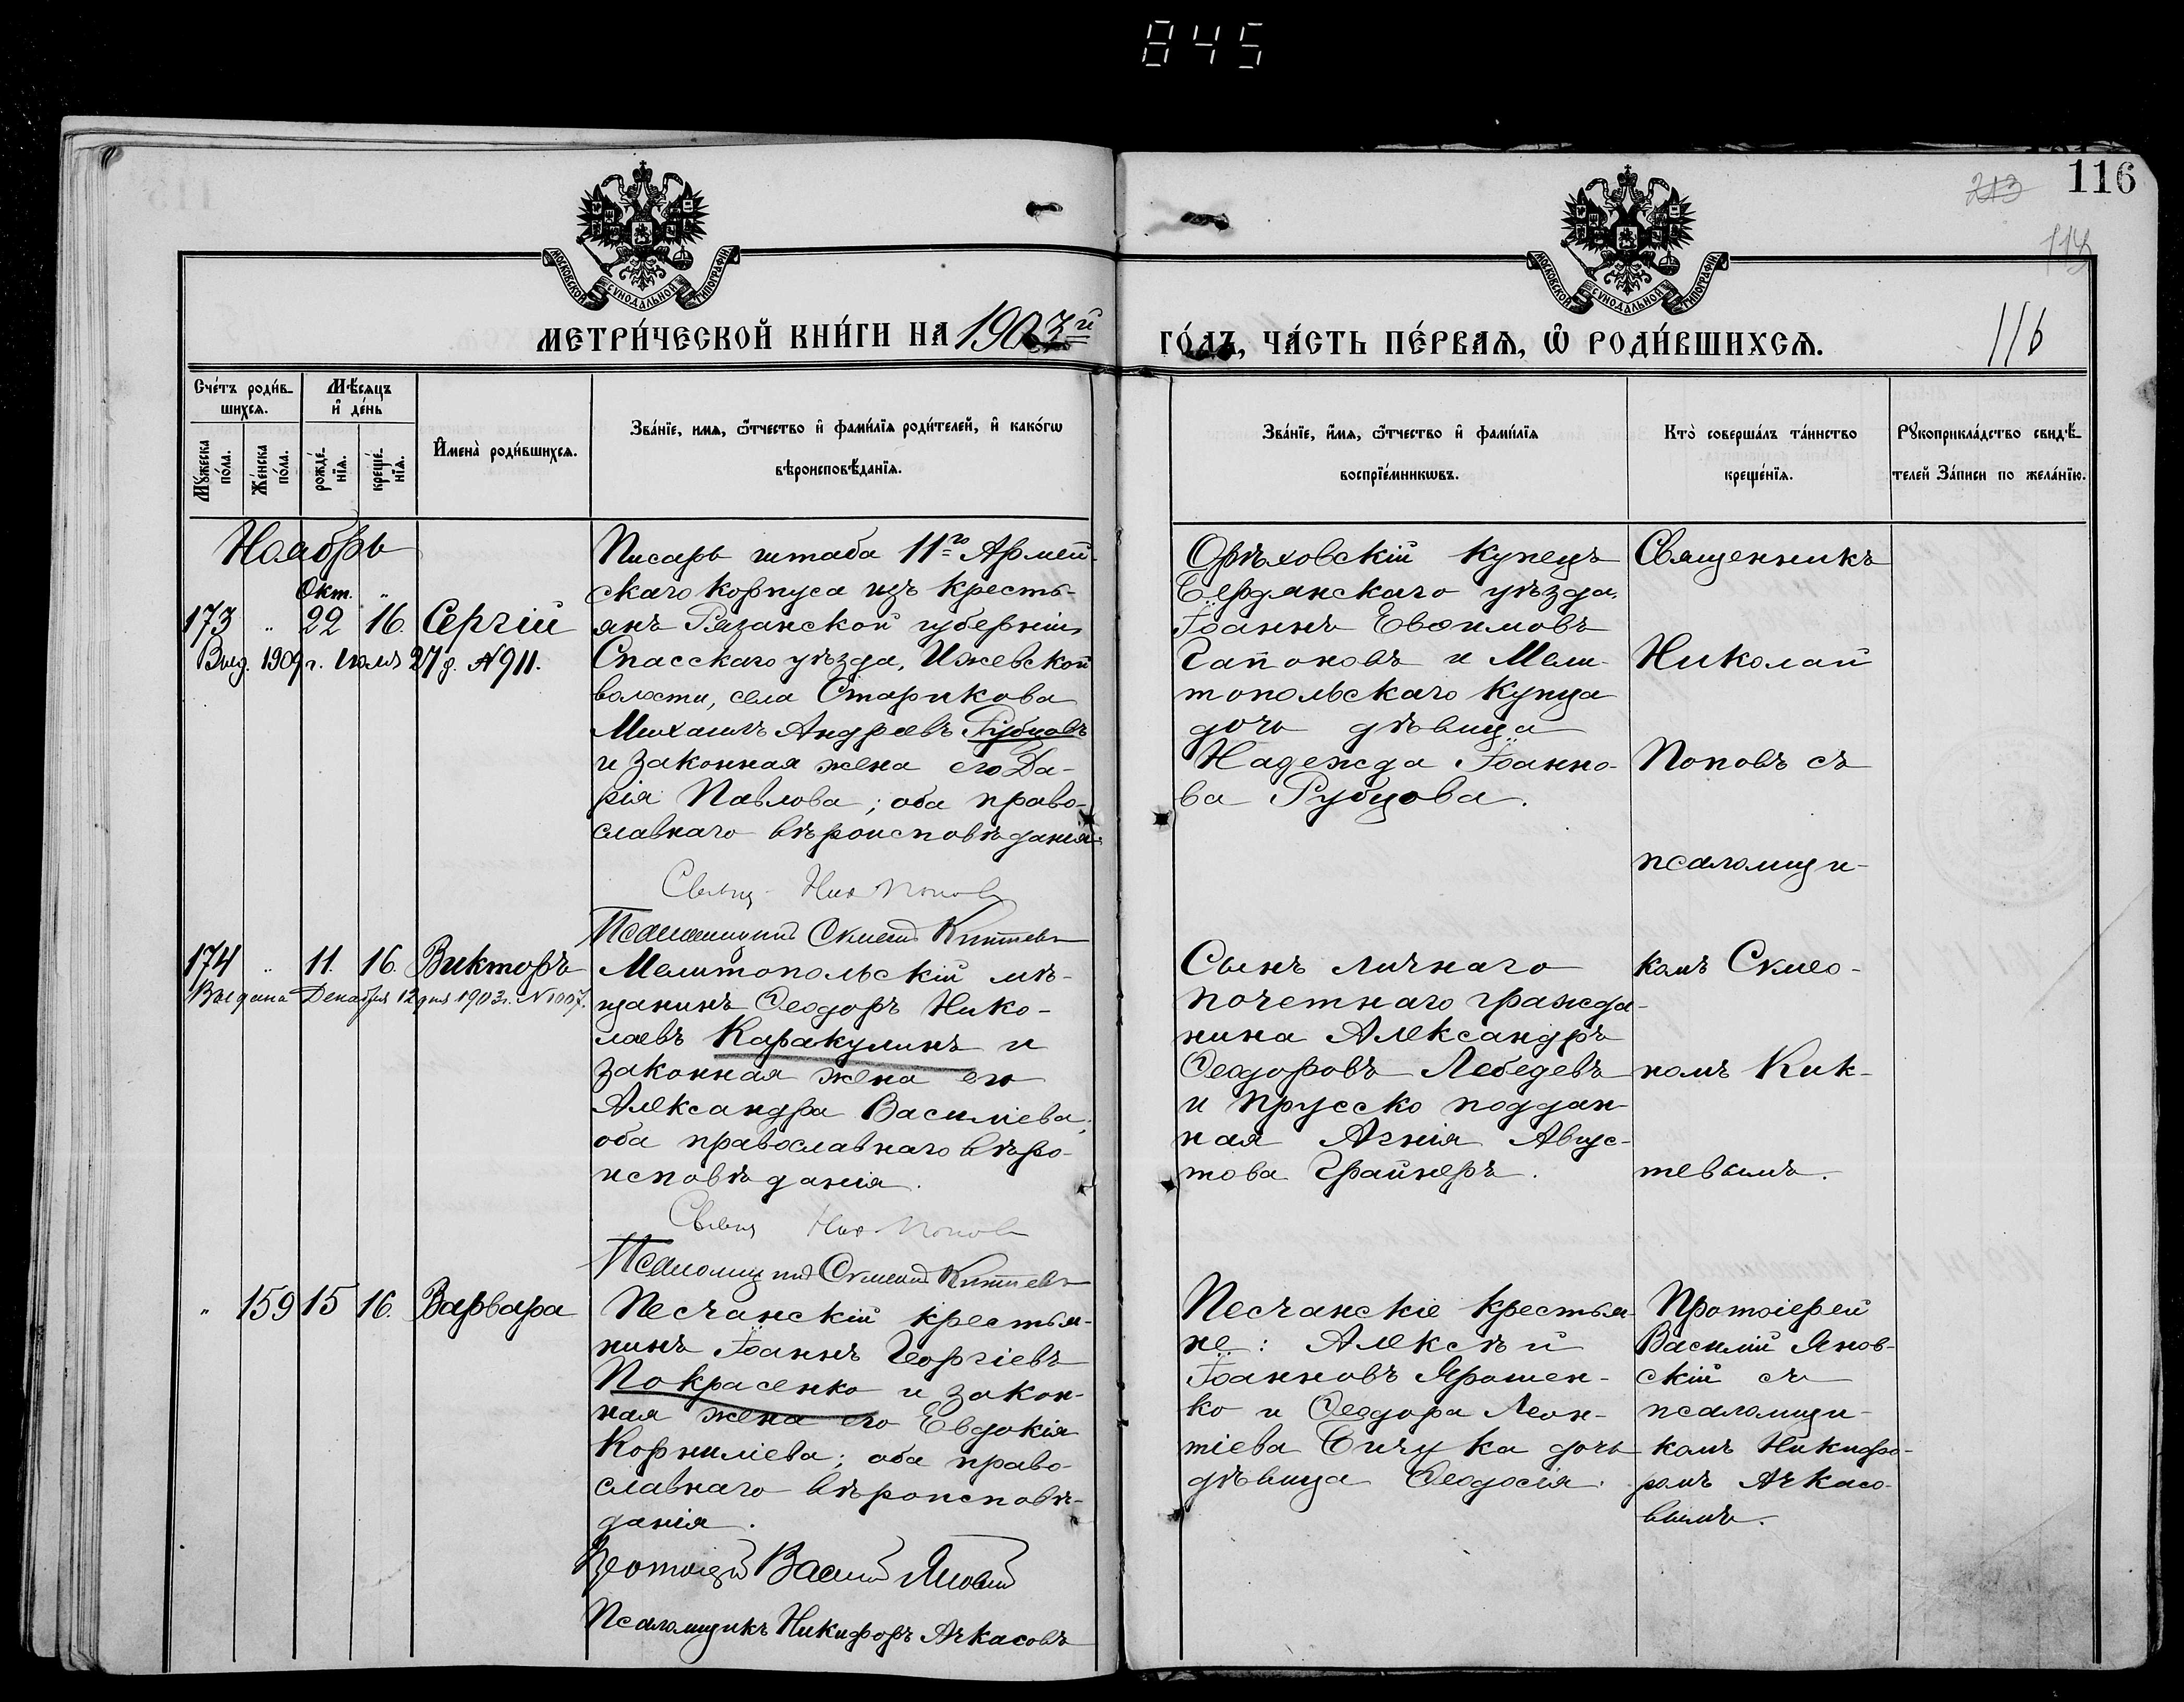 845
116
213
МОСКОВСКОЙ СѴНОДАЛЬНОЙ ТИПОГРАФІИ
МОСКОВСКОЙ СѴНОДАЛЬНОЙ ТИПОГРАФІИ
116
МЕТРИ́ЧЕСКОЙ КНИ́ГИ НА 1903й ГО́ДЪ, ЧА́СТЬ ПЕ́РВАЯ, Ѡ҆ РОДИ́ВШИХСЯ.
Сче́тъ роди́в-
шихся.
Мѣ́сяцъ
и҆ де́нь
Мꙋ́жеска по́ла.
Же́нска по́ла.
рожде́нїя.
креще́нїя.
И҆мена̀ роди́вшихся.
Зва́нїе, и҆мя, ѻ҆́тчество и҆ фами́лїя роди́телей, и҆ како́гѡ
вѣроисповѣ́данїя.
Зва́нїе, и҆́мя, ѻ҆́тчество и҆ фами́лїя
воспрїе́мникѡвъ.
Кто̀ соверша́лъ та́инство
креще́нїя.
Рꙋкоприкла́дство свидѣ́-
телей За́писи по жела́нїю.
Ноябрь
Окт. "
173 " 22 16. Сергій
Выд. 1909 г. Іюля 27 д. № 911.
Писарь штаба 11го Армей-
скаго корпуса изъ кресть-
янъ Рязанской губерніи,
Спасскаго уѣзда, Ижевской
волости, села Старикова
Михаилъ Андреевъ Рубцовъ
и законная жена его Да-
рія Павлова; оба право-
славнаго вѣроисповѣданія.
Свящ. Ник Попов
Псаломщикъ Киктевъ
Орѣховскій купецъ
Бердянскаго уѣзда,
Іоаннъ Евѳимовъ
Гапоновъ и Мели-
топольскаго купца
дочь дѣвица
Надежда Іоанно-
ва Рубцова.
Священникъ
Николай
Поповъ съ
псаломщи-
174 " 11. 16. Викторъ
Выдана Декабря 12 дня 1903 г. № 1007.
Мелитопольскій мѣ-
щанинъ Ѳеодоръ Нико-
лаевъ Каракулинъ и
законная жена его
Александра Василіева;
оба православнаго вѣро-
исповѣданія.
Свящ Ник Попов
Псаломщикъ Киктевъ
Сынъ личнаго
почетнаго гражда-
нина Александръ
Ѳеодоровъ Лебедевъ
и прусско поддан-
ная Агнія Авгус-
това Грайнеръ.
комъ Симео-
номъ Кик-
тевымъ.
" 159 15 16. Варвара
Песчанскій крестья-
нинъ Іоаннъ Георгіевъ
Покрасенко и закон-
ная жена его Евдокія
Корниліева; оба право-
славнаго вѣроисповѣ-
данія.
Протоіерей Василій Яновскій
Псаломщикъ Никифоръ Ачкасовъ
Песчанскіе крестья-
не: Алексѣй
Іоанновъ Ярошен-
ко и Ѳеодора Леон-
тіева Бичука дочь
дѣвица Ѳеодосія.
Протоіерей
Василій Янов-
скій съ
псаломщи-
комъ Никифо-
ромъ Ачкасо-
вымъ.